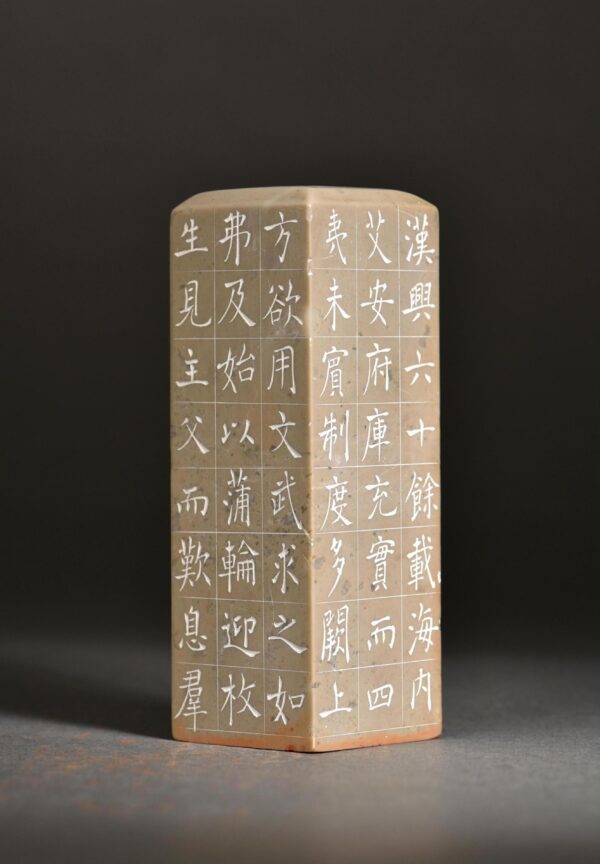 漢興六十餘載海内
艾安府庫充實而四
夷未賓制度多闕上
方欲用文武求之如
弗及始以蒲輪迎枚
生見主父而歎息羣